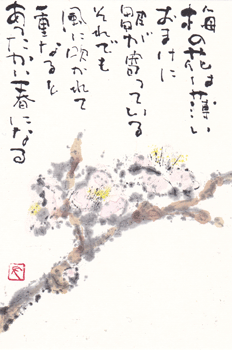 梅の花は薄い
おまけに
が っている
それでも
風に吹かれて
重なると
あったかい春になる